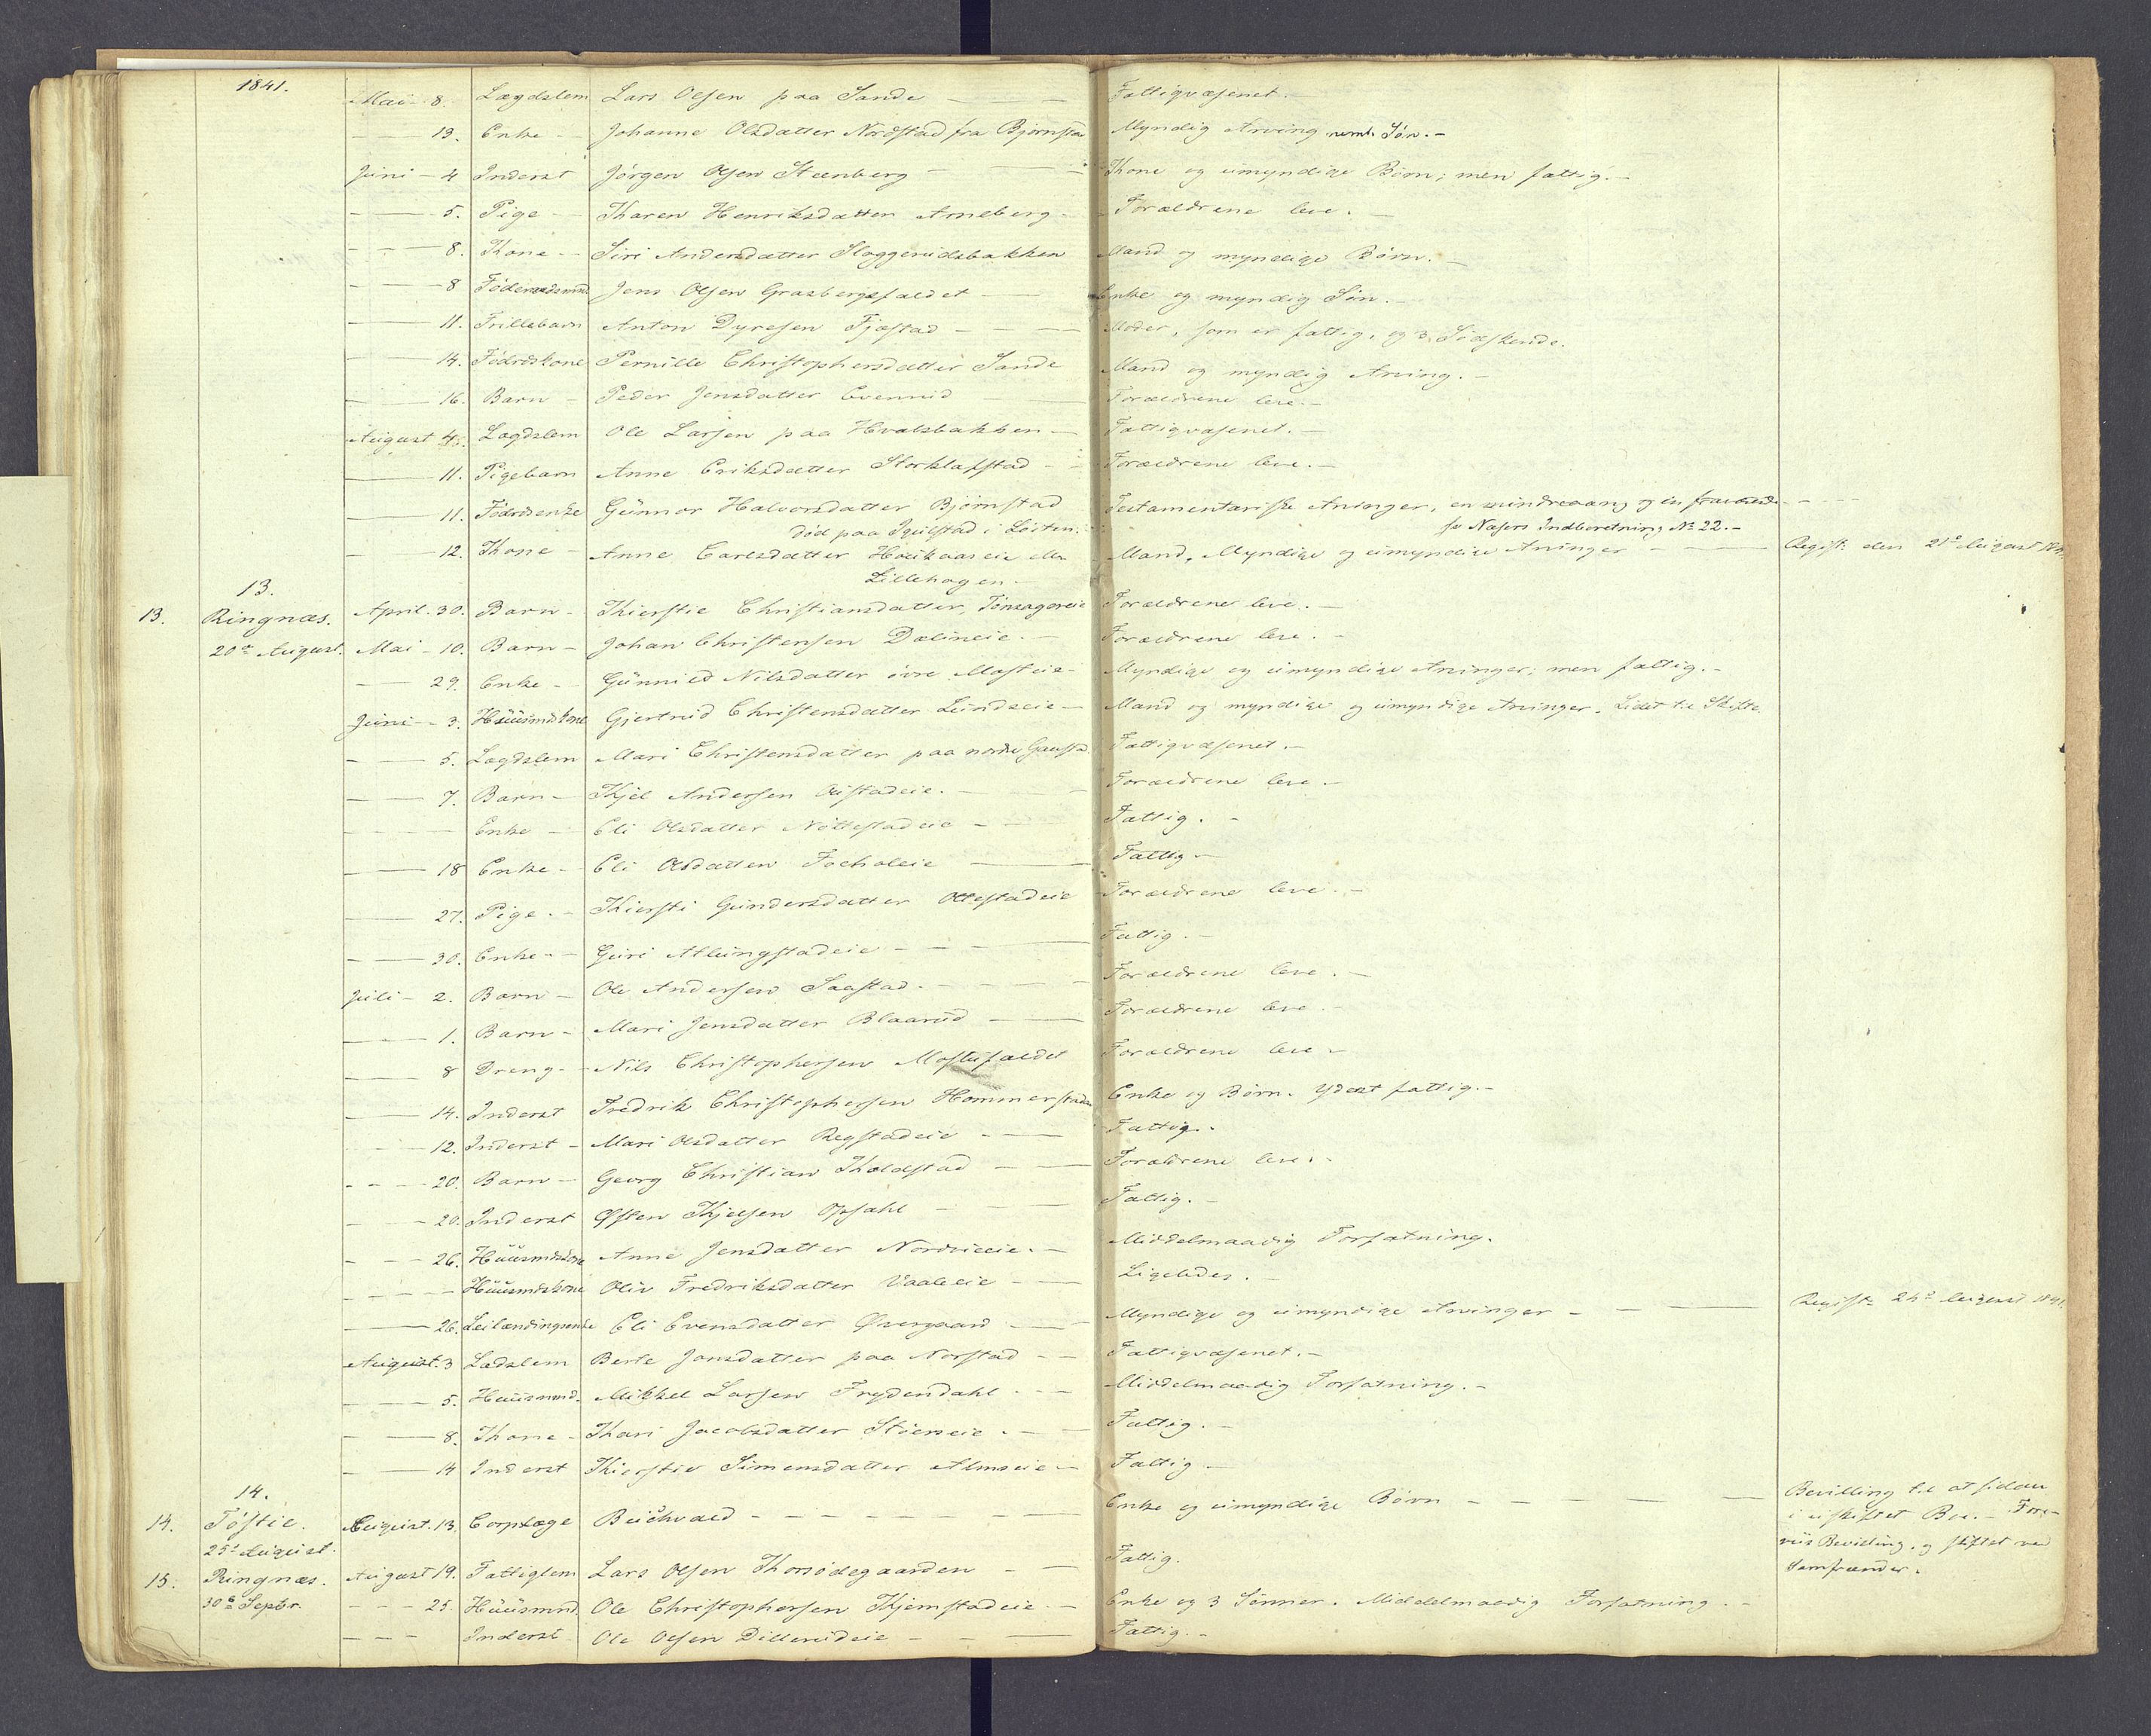 1841.
Mai - 8. Lægdslem Lars Olsen paa Sande Fattigvæsenet.
13. Enke Johanne Olsdatter Nordstad fra Bjørnstad Myndig Arving neml. Søn.
Juni - 4 Inderst Jørgen Olsen Steenberg Kone og umyndige Børn; men fattig.
5. Pige Karen Henriksdatter Arneberg Forældrene leve.
8. Kone Siri Andersdatter Sloggerudsbakken Mand og myndige Børn.
8 Føderaadsmnd Jens Olsen Grasbergsfaldet Enke og myndig Søn.
11. Frillebarn Anton Dyresen Fjæstad Moder, som er fattig, og 3 Sødskende.
14. Fødrdskone Pernille Christophersdatter Sande Mand og myndig Arving.
16. Barn Peder Jensdatter Evenrud Forældrene leve.
August 4. Lægdslem Ole Larsen paa Hvalsbakken Fattigvæsenet.
11. Pigebarn Anne Eriksdatter Storklafstad Forældrene leve.
11. Fødrdsenke Gunnor Halvorsdatter Bjørnstad Testamentariske Arvinger, en mindreaarig og en fraværende
død paa i Løiten. Næsers Indberetning No 22.
12. Kone Anne Carlsdatter eller Mand, Myndige og umyndige Arvinger Regist. den 21de August 1841.
Lillehagen.
13.
13. Ringnæs. April. 30. Barn Kierstie Christiansdatter, Tønsagereie Forældrene leve.
20de August. Mai - 10. Barn Johan Christensen Dælineie. Forældrene leve.
29. Enke Gunnild Nilsdatter øvre Mosteie Myndige og umyndige Arvinger; men fattig.
Juni - 3. Huusmdskone Gjertrud Christensdatter Lundseie Mand og myndige og umyndige Arvinger. Lidet til Skifte.
5. Lægdslem Mari Christensdatter paa nordre Gaustad Fattigvæsenet.
7. Barn Kjel Andersen Forældrene leve.
Enke Eli Olsdatter Nøttestadeie Fattig.
18 Enke Eli Olsdatter Fattig
27. Pige. Kiersti Gundersdatter Ottestadeie Forældrene leve.
30. Enke Guri Atlungstadeie Fattig.
Juli - 2. Barn Ole Andersen Saastad. Forældrene leve.
1. Barn Mari Jensdatter Blaarud Forældrene leve.
8 Dreng Nils Christophersen Mostufaldet Forældrene leve
14. Inderst Fredrik Christophersen Hommerstadeie Enke og Børn. Yderst fattig.
12. Inderst Mari Olsdatter Regstadeie Fattig.
20. Barn Georg Christian Kholdstad Forældrene leve.
20. Inderst Østen Kjelsen Opsahl Fattig.
26. Huusmdskone Anne Jensdatter Nordvieie. Middelmaadig Forfatning.
Huusmdskone Oliv Fredriksdatter Vaaleeie Ligeledes.
26. Leilændingsenke Eli Evensdatter Øvergaard Myndige og umyndige Arvinger Regist. 24de August 1841.
August. 3 Lædslem Berte Jonsdatter paa Norstad Fattigvæsenet.
5. Huusmnd. Mikkel Larsen Frydendahl Middelmaadig Forfatning.
8. Kone Kari Jacobsdatter Støenseie Fattig.
14 Inderst Kierstie Simensdatter Almseie Fattig.
14.
14. Tøstie. August. 13. Corpslæge Buchvald Enke og umyndige Børn Bevilling til at sidde
25de August. i uskiftet Boe. Fore-
viis Bevilling. og skiftet ved
15. Ringnæs. August 19. Fattiglem Lars Olsen Thorsødegaarden Fattig. Samfrænder.
30te Septbr. 25. Huusmnd. Ole Christophersen Kjemstadeie Enke og 3 Sønner. Middelmaadig Forfatning.
Inderst Ole Olsen Dillerudeie Fattig.